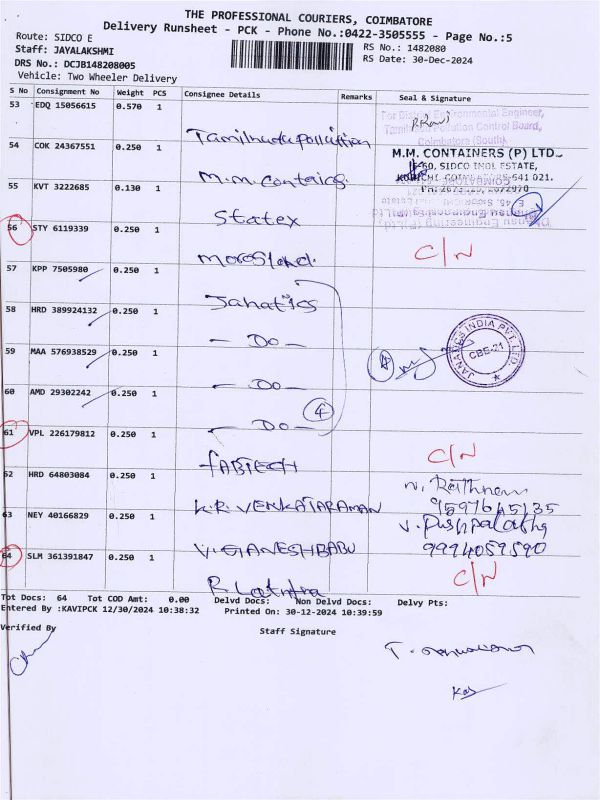 THE PROFESSIONAL COURIERS, COIMBATORE
Delivery Runsheet - PCK - Phone No.:0422-3505555 - Page No.:5
Route: SIDCO E
Staff: JAYALAKSHMI
RS No.: 1482080
DRS No.: DCJB148208005
RS Date: 30-Dec-2024
Vehicle: Two Wheeler Delivery
S No Consignment No Weight PCS Consignee Details Remarks Seal & Signature
53 EDQ 15056615 0.570 1 Tamilnadu pollution
For District Environmental Engineer,
Tamilnadu Pollution Control Board,
Coimbatore (South).
54 COK 24367551 0.250 1 M.M. Containers
M.M. CONTAINERS (P) LTD
SIDCO INDL ESTATE,
55 KVT 3222685 0.130 1 Statex
56 STY 6119339 0.250 1 C/N
57 KPP 7505980 0.250 1 Janatics
58 HRD 389924132 0.250 1 - Do -
59 MAA 576938529 0.250 1 - Do -
JANATICS INDIA PVT. LTD.
CBE-21
60 AMD 29302242 0.250 1 - Do - 4
61 VPL 226179812 0.250 1 FABTECH C/N
62 HRD 64803084 0.250 1 K.R. VENKATARAMAN
9597645135
63 NEY 40166829 0.250 1 V. GANESH BABU V. Pushpalatha
9994059590
64 SLM 361391847 0.250 1 C/N
Tot Docs: 64 Tot COD Amt: 0.00 Delvd Docs: Non Delvd Docs: Delvy Pts:
Entered By :KAVIPCK 12/30/2024 10:38:32 Printed On: 30-12-2024 10:39:59
Verified By
Staff Signature